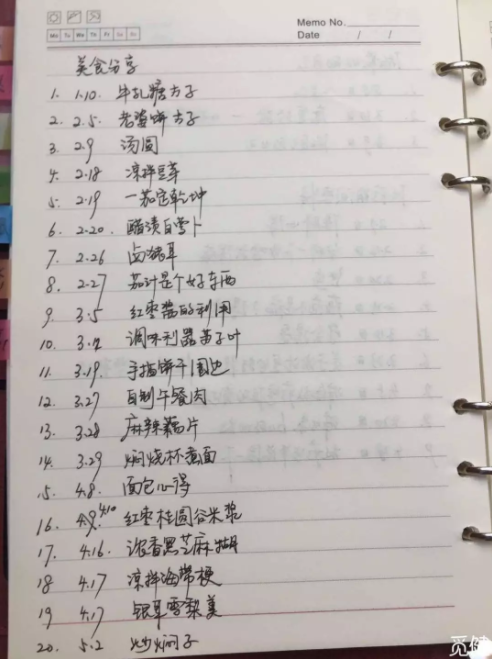 Memo No.
Mo Tu We Th Fr Sa Su
Date / /
美食分享
1. 1.10. 牛轧糖方子
2. 2.5. 老婆饼方子
3. 2.9 汤圆
4. 2.18 凉拌豆芽
5. 2.19 一茄定乾坤
6. 2.20. 醋渍白萝卜
7. 2.26 卤猪耳
8. 2.27 茄汁是个好东西
9. 3.5 红枣酱的利用
10. 调味利器苗子叶
11. 3.19. 手指饼干围边
12. 3.27 自制午餐肉
13. 3.28 麻辣藕片
14. 3.29 焖烧杯煮面
15. 4.8. 面包心得
16. 4.9. 4.10 红枣桂圆谷米浆
17. 4.16. 浓香黑芝麻糊
18 4.17 凉拌海带梗
19 4.17 银耳雪梨羹
20. 5.2 炒焖子